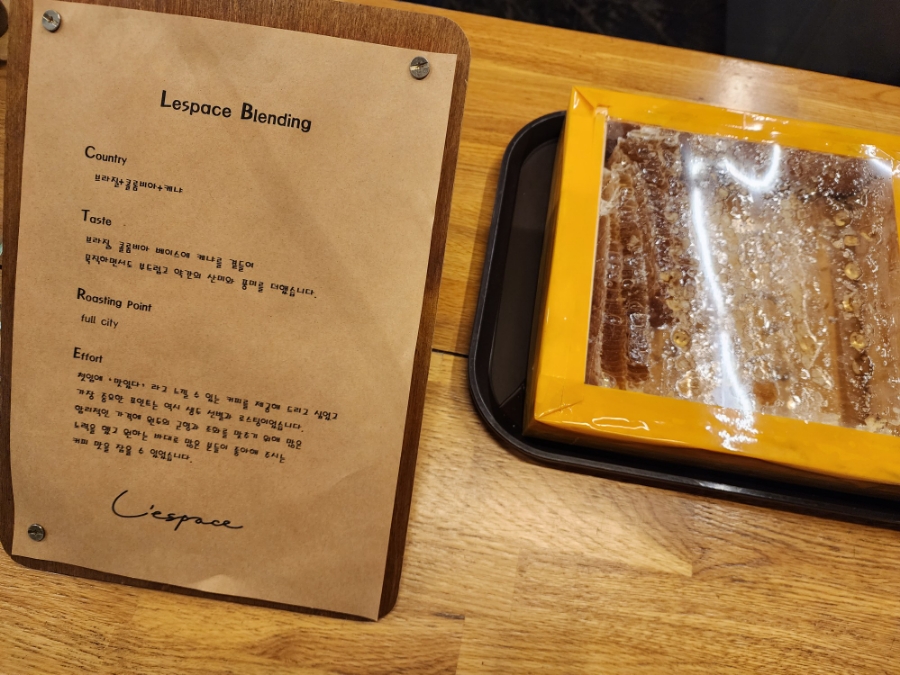 Lespace Blending
Country
브라질+콜롬비아+케냐
Taste
브라질, 콜롬비아 베이스에 케냐를 곁들여
묵직하면서도 부드럽고 약간의 산미와 풍미를 더했습니다.
Roasting Point
full city
Effort
첫입에 '맛있다' 라고 느낄 수 있는 커피를 제공해 드리고 싶었고
가장 중요한 포인트는 역시 생두 선별과 로스팅이었습니다.
합리적인 가격에 원두의 균형과 조화를 맞추기 위해 많은
노력을 했고 원하는 바대로 많은 분들이 좋아해 주시는
커피 맛을 잡을 수 있었습니다.
L'espace